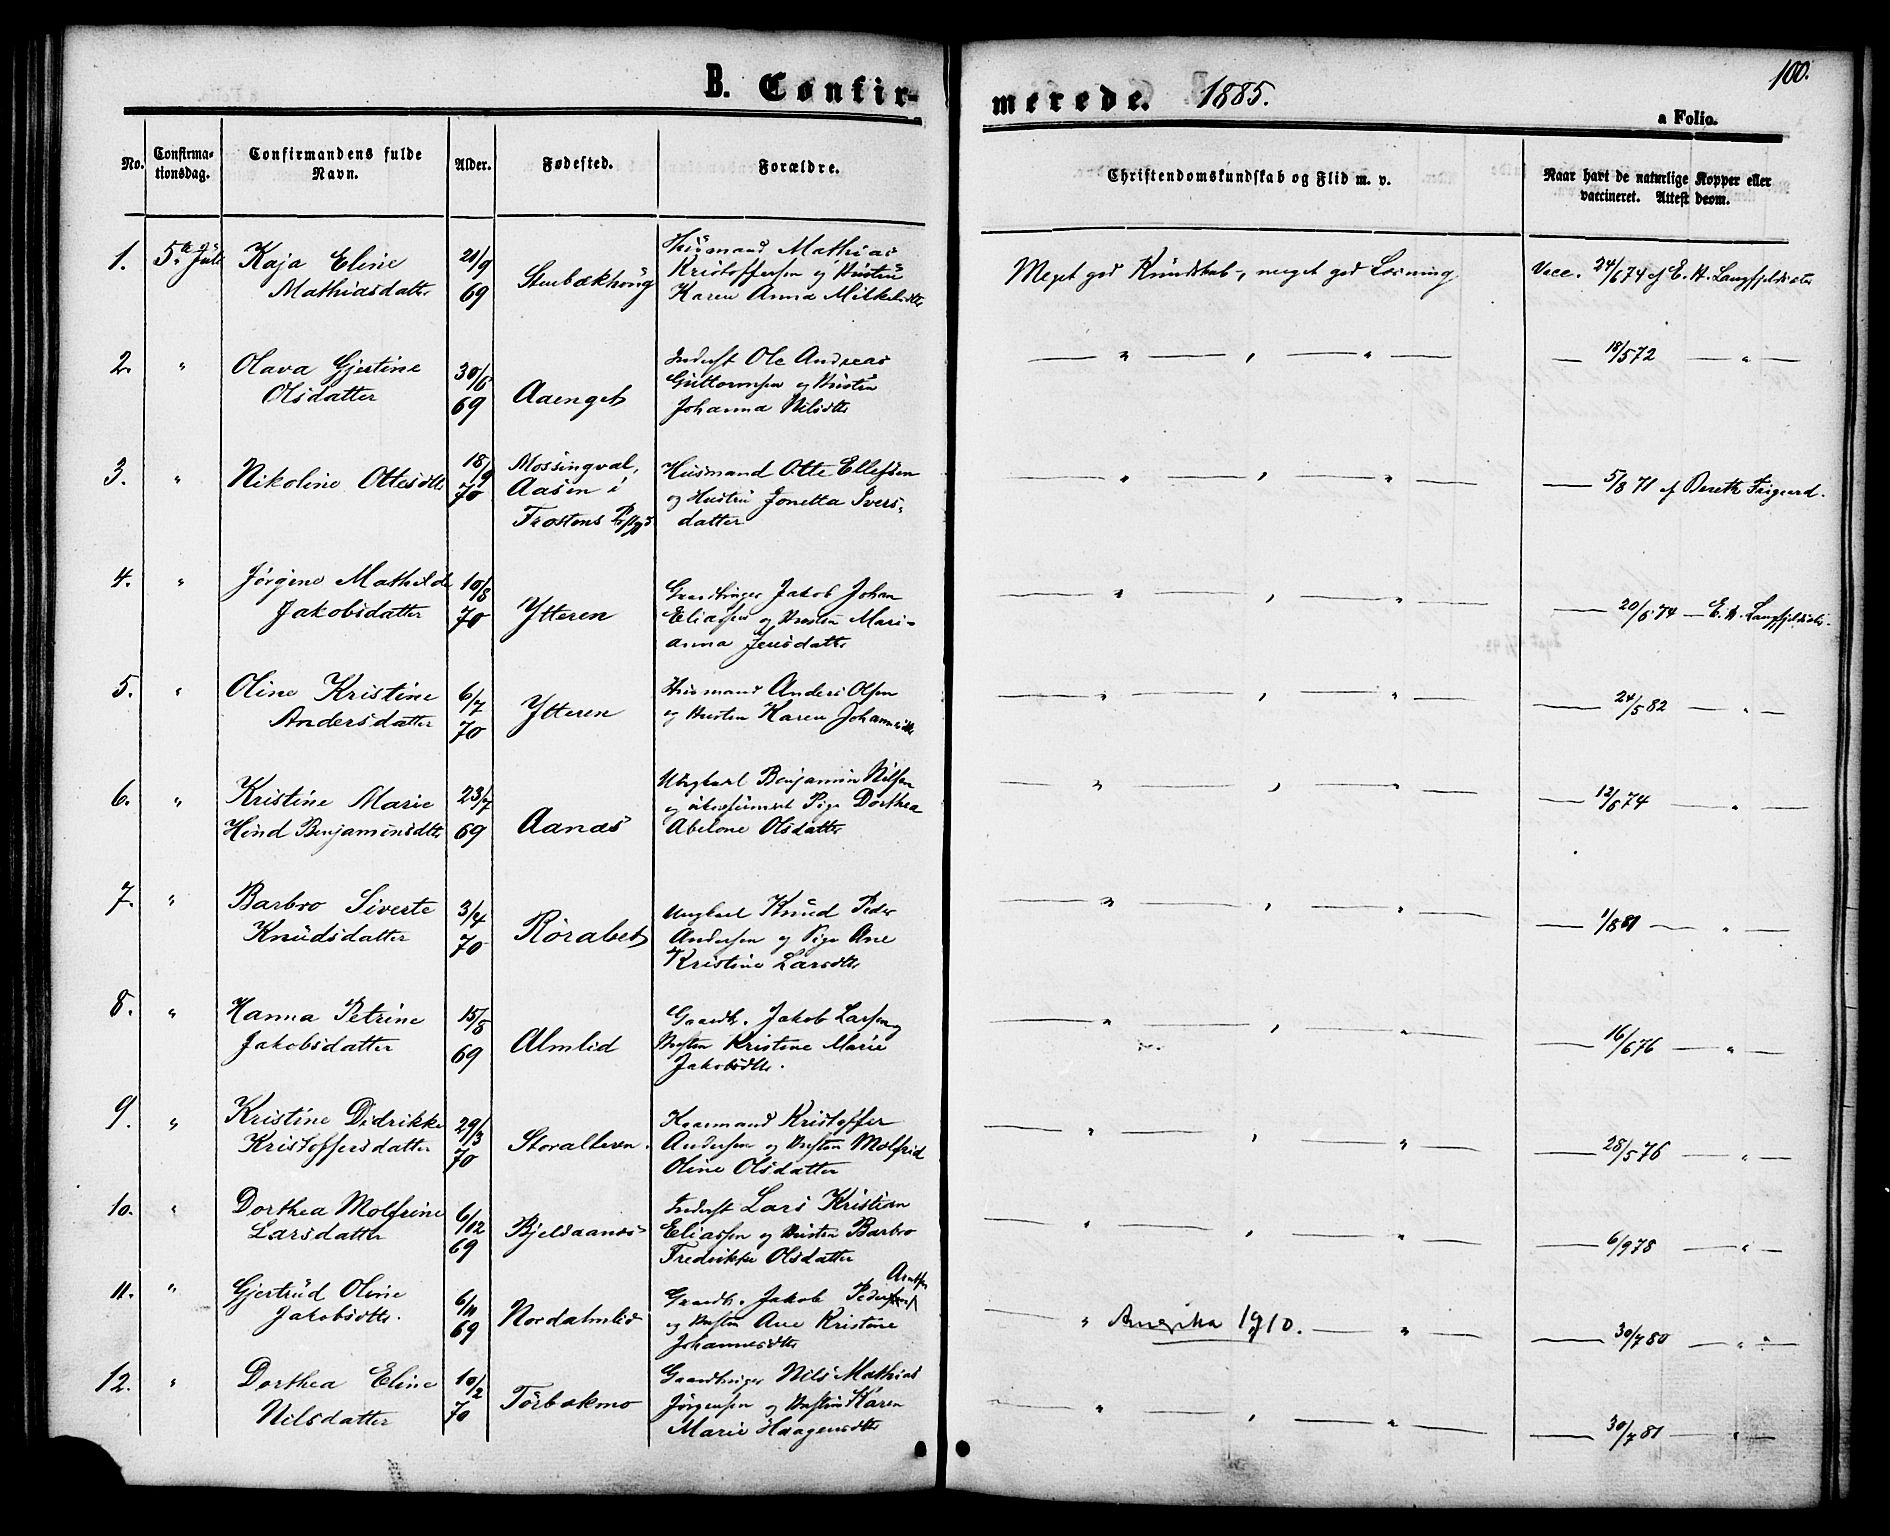 100.
B. Confir-
merede. 1885.
a Folio.
No.
Confirma-
tionsdag.
Confirmandens fulde
Navn.
Alder.
Fødested.
Forældre.
Christendomskundskab og Flid m. v.
Naar havt de naturlige Kopper eller
vaccineret. Attest derom.
1. 5te Juli Kaja Eline
Mathiasdatter
21/9
69
Stenbækhøug
Husmand Mathias
Kristoffersen og Hustru
Karen Anna Mikkelsdtr
Meget god Kundskab, meget god Læsning
Vacc. 24/6 74 af E. H. Langfjeldsæter
2. " Olava Gjertine
Olsdatter
30/6
69
Aaenget
Inderst Ole Andreas
Guttormsen og Hustru
Johanna Nilsdtr
— " — , — " —
— 18/5 72 — " —
3. " Nikoline Ottesdtr
18/9
70
Mossingval,
Aasen i
Frostens Prstgd
Husmand Otte Ellefsen
og Hustru Jonetta Ivers-
datter
— " — , — " —
— 5/8 71 af Bereth
4. " Jørgine Mathilde
Jakobsdatter
10/8
70
Ytteren
Gaardbruger Jakob Johan
Eliassen og Hustru Mari-
anna Jensdatter
— " — , — " —
— 20/6 74 — E. H. Langfjeldsæter
5. " Oline Kristine
Andersdatter
6/7
70
Ytteren
Husmand Anders Olsen
og Hustru Karen Johannesdtr
— " — , — " —
— 24/5 82 — " —
6. " Kristine Marie
Hind Benjaminsdtr
23/7
69
Aanæs
Ungkarl Benjamin Nilsen
og Pige Dorthea
Abelone Olsdatter
— " — , — " —
— 12/6 74 — " —
7. " Barbro Siverte
Knudsdatter
3/4
70
Rørabet
Ungkarl Knud Peder
Andersen og Pige Ane
Kristine Larsdtr
— " — , — " —
— 1/8 81 — " —
8. " Hanna Petrine
Jakobsdatter
15/8
69
Almlid
Gaardb. Jakob Larsen og
Hustru Kristine Marie
Jakobsdtr.
— " — , — " —
— 16/6 76 — " —
9. " Kristine Didrikke
Kristoffersdatter
29/3
70
Storalteren.
Kaarmand Kristoffer
Andersen og Hustru Molfrid
Oline Olsdatter
— " — , — " —
— 28/5 76 — " —
10. " Dorthea Molfrine
Larsdatter
6/12
69
Bjeldaanæs
Inderst Lars Kristian
Eliassen og Hustru Barbro
Fredrikke Olsdatter
— " — , — " —
— 6/9 78 — " —
11. " Gjertrud Oline
Jakobsdtr.
6/11
69
Nordalmlid
Arntsen
Gaardb. Jakob Pedersen
og Hustru Ane Kristine
Johannesdtr
— " Amerika 1910. — " —
— 30/7 80 — " —
12. " Dorthea Eline
Nilsdatter
10/2
70
Tørbækmo
Gaardbruger Nils Mathias
Jørgensen og Hustru Karen
Marie Haagensdtr
— " — , — " —
— 30/7 81 — " —